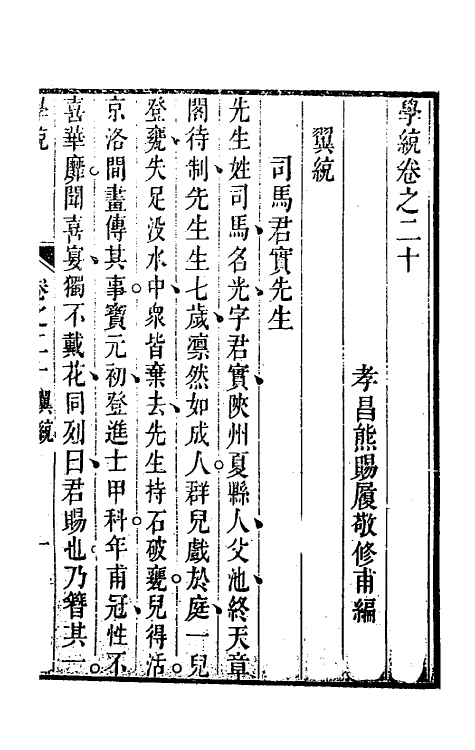 學統卷之二十
孝昌熊賜履敬修甫編
翼統
司馬君實先生
先生姓司馬名光字君實陝州夏縣人父池終天章
閣待制先生生七歲凛然如成人羣兒戲於庭一兒
登甕失足没水中衆皆棄去先生持石破甕兒得活
京洛間畫傳其事寶元初登進士甲科年甫冠性不
喜華靡聞喜宴獨不戴花同列曰君賜也乃簪其一
學統
卷之二十翼統
一